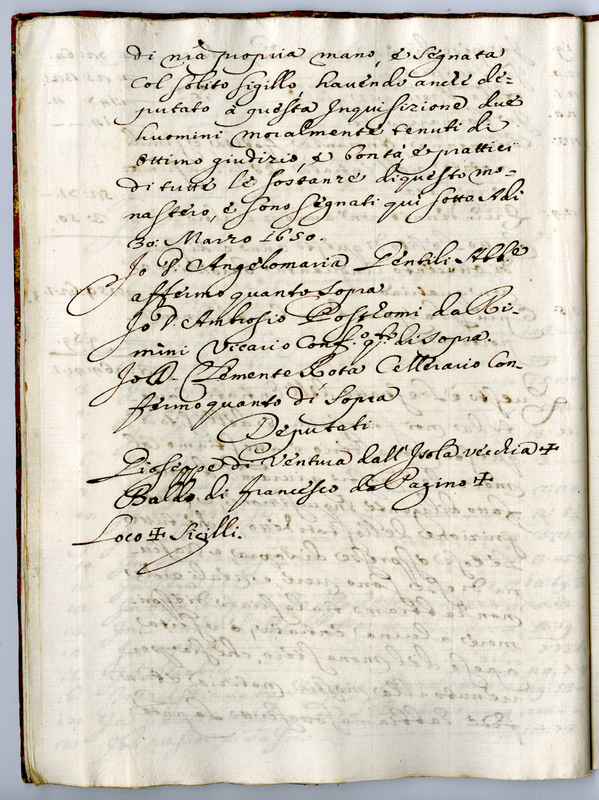 di n̄ra propria mano, e segnata
Col solito sigillo, havendo anche de-
putato à questa Inquisizione due
huomini moralmente tenuti di
ottimo giudizio, e bontà, e prattici
di tutte le sostanze di questo mo-
nastero, e sono segnati qui sotto Adi
30: Marzo 1650.
Io D. Angelomaria Gentili Abb.e
affermo quanto sopra
Io D. Ambrosio da Ri-
mini Vicario Conf.o q.to di sopra
Io D. Clemente Rota Cellerario Con-
fermo quanto di sopra
Deputati
Gioseppe di Ventura dall'Isola vecchia ✠
Baldo di Francesco da Pagino ✠
Loco ✠ Sigilli.